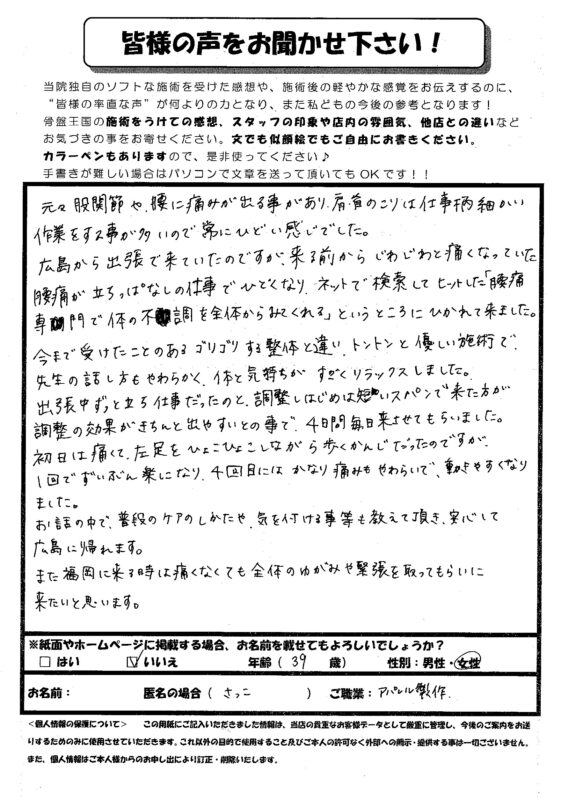 皆様の声をお聞かせ下さい！
当院独自のソフトな施術を受けた感想や、施術後の軽やかな感覚をお伝えするのに、
“皆様の率直な声”が何よりの力となり、また私どもの今後の参考となります！
骨盤王国の施術をうけての感想、スタッフの印象や店内の雰囲気、他店との違いなど
お気づきの事をお寄せください。文でも似顔絵でもご自由にお書きください。
カラーペンもありますので、是非使ってください♪
手書きが難しい場合はパソコンで文章を送って頂いてもOKです！！
元々股関節や、腰に痛みが出る事があり、肩、首のこりは仕事柄細かい
作業をする事が多いので常にひどい感じでした。
広島から出張で来ていたのですが、来る前からじわじわと痛くなっていた
腰痛が立ちっぱなしの仕事でひどくなり、ネットで検索してヒットした「腰痛
専門で体の不調を全体からみてくれる」というところにひかれて来ました。
今まで受けたことのあるゴリゴリする整体と違い、トントンと優しい施術で、
先生の話し方もやわらかく、体と気持ちがすごくリラックスしました。
出張中ずっと立ち仕事だったのと、調整しはじめは短いスパンで来た方が
調整の効果がきちんと出やすいとの事で、4日間毎日来させてもらいました。
初日は痛くて、左足をひょこひょこしながら歩くかんじだったのですが、
1回でずいぶん楽になり、4回目にはかなり痛みもやわらいで、動きやすくなり
ました。
お話の中で、普段のケアのしかたや、気を付ける事等も教えて頂き、安心して
広島に帰れます。
また福岡に来る時は痛くなくても全体のゆがみや緊張を取ってもらいに
来たいと思います。
※紙面やホームページに掲載する場合、お名前を載せてもよろしいでしょうか？
□ はい ☑ いいえ 年齢（ 39 歳） 性別：男性・女性
お名前： 匿名の場合（ さっこ ） ご職業：アパレル製作.
＜個人情報の保護について＞ この用紙にご記入いただきました情報は、当店の貴重なお客様データとして厳重に管理し、今後のご案内をお送
りするためのみに使用させていただきます。これ以外の目的で使用すること及びご本人の許可なく外部への開示・提供する事は一切ございません。
また、個人情報はご本人様からのお申し出により訂正・削除いたします。